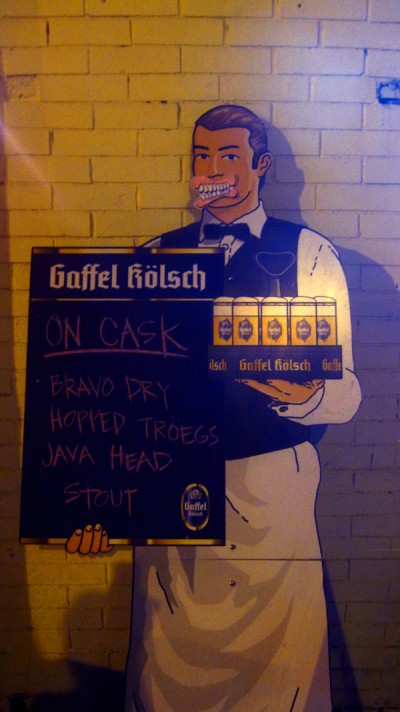 Gaffel Kölsch
ON CASK
BRAVO DRY
HOPPED TRÖEGS
JAVA HEAD
STOUT
Gaffel
Kölsch
ölsch Gaffel Kölsch Gaffe